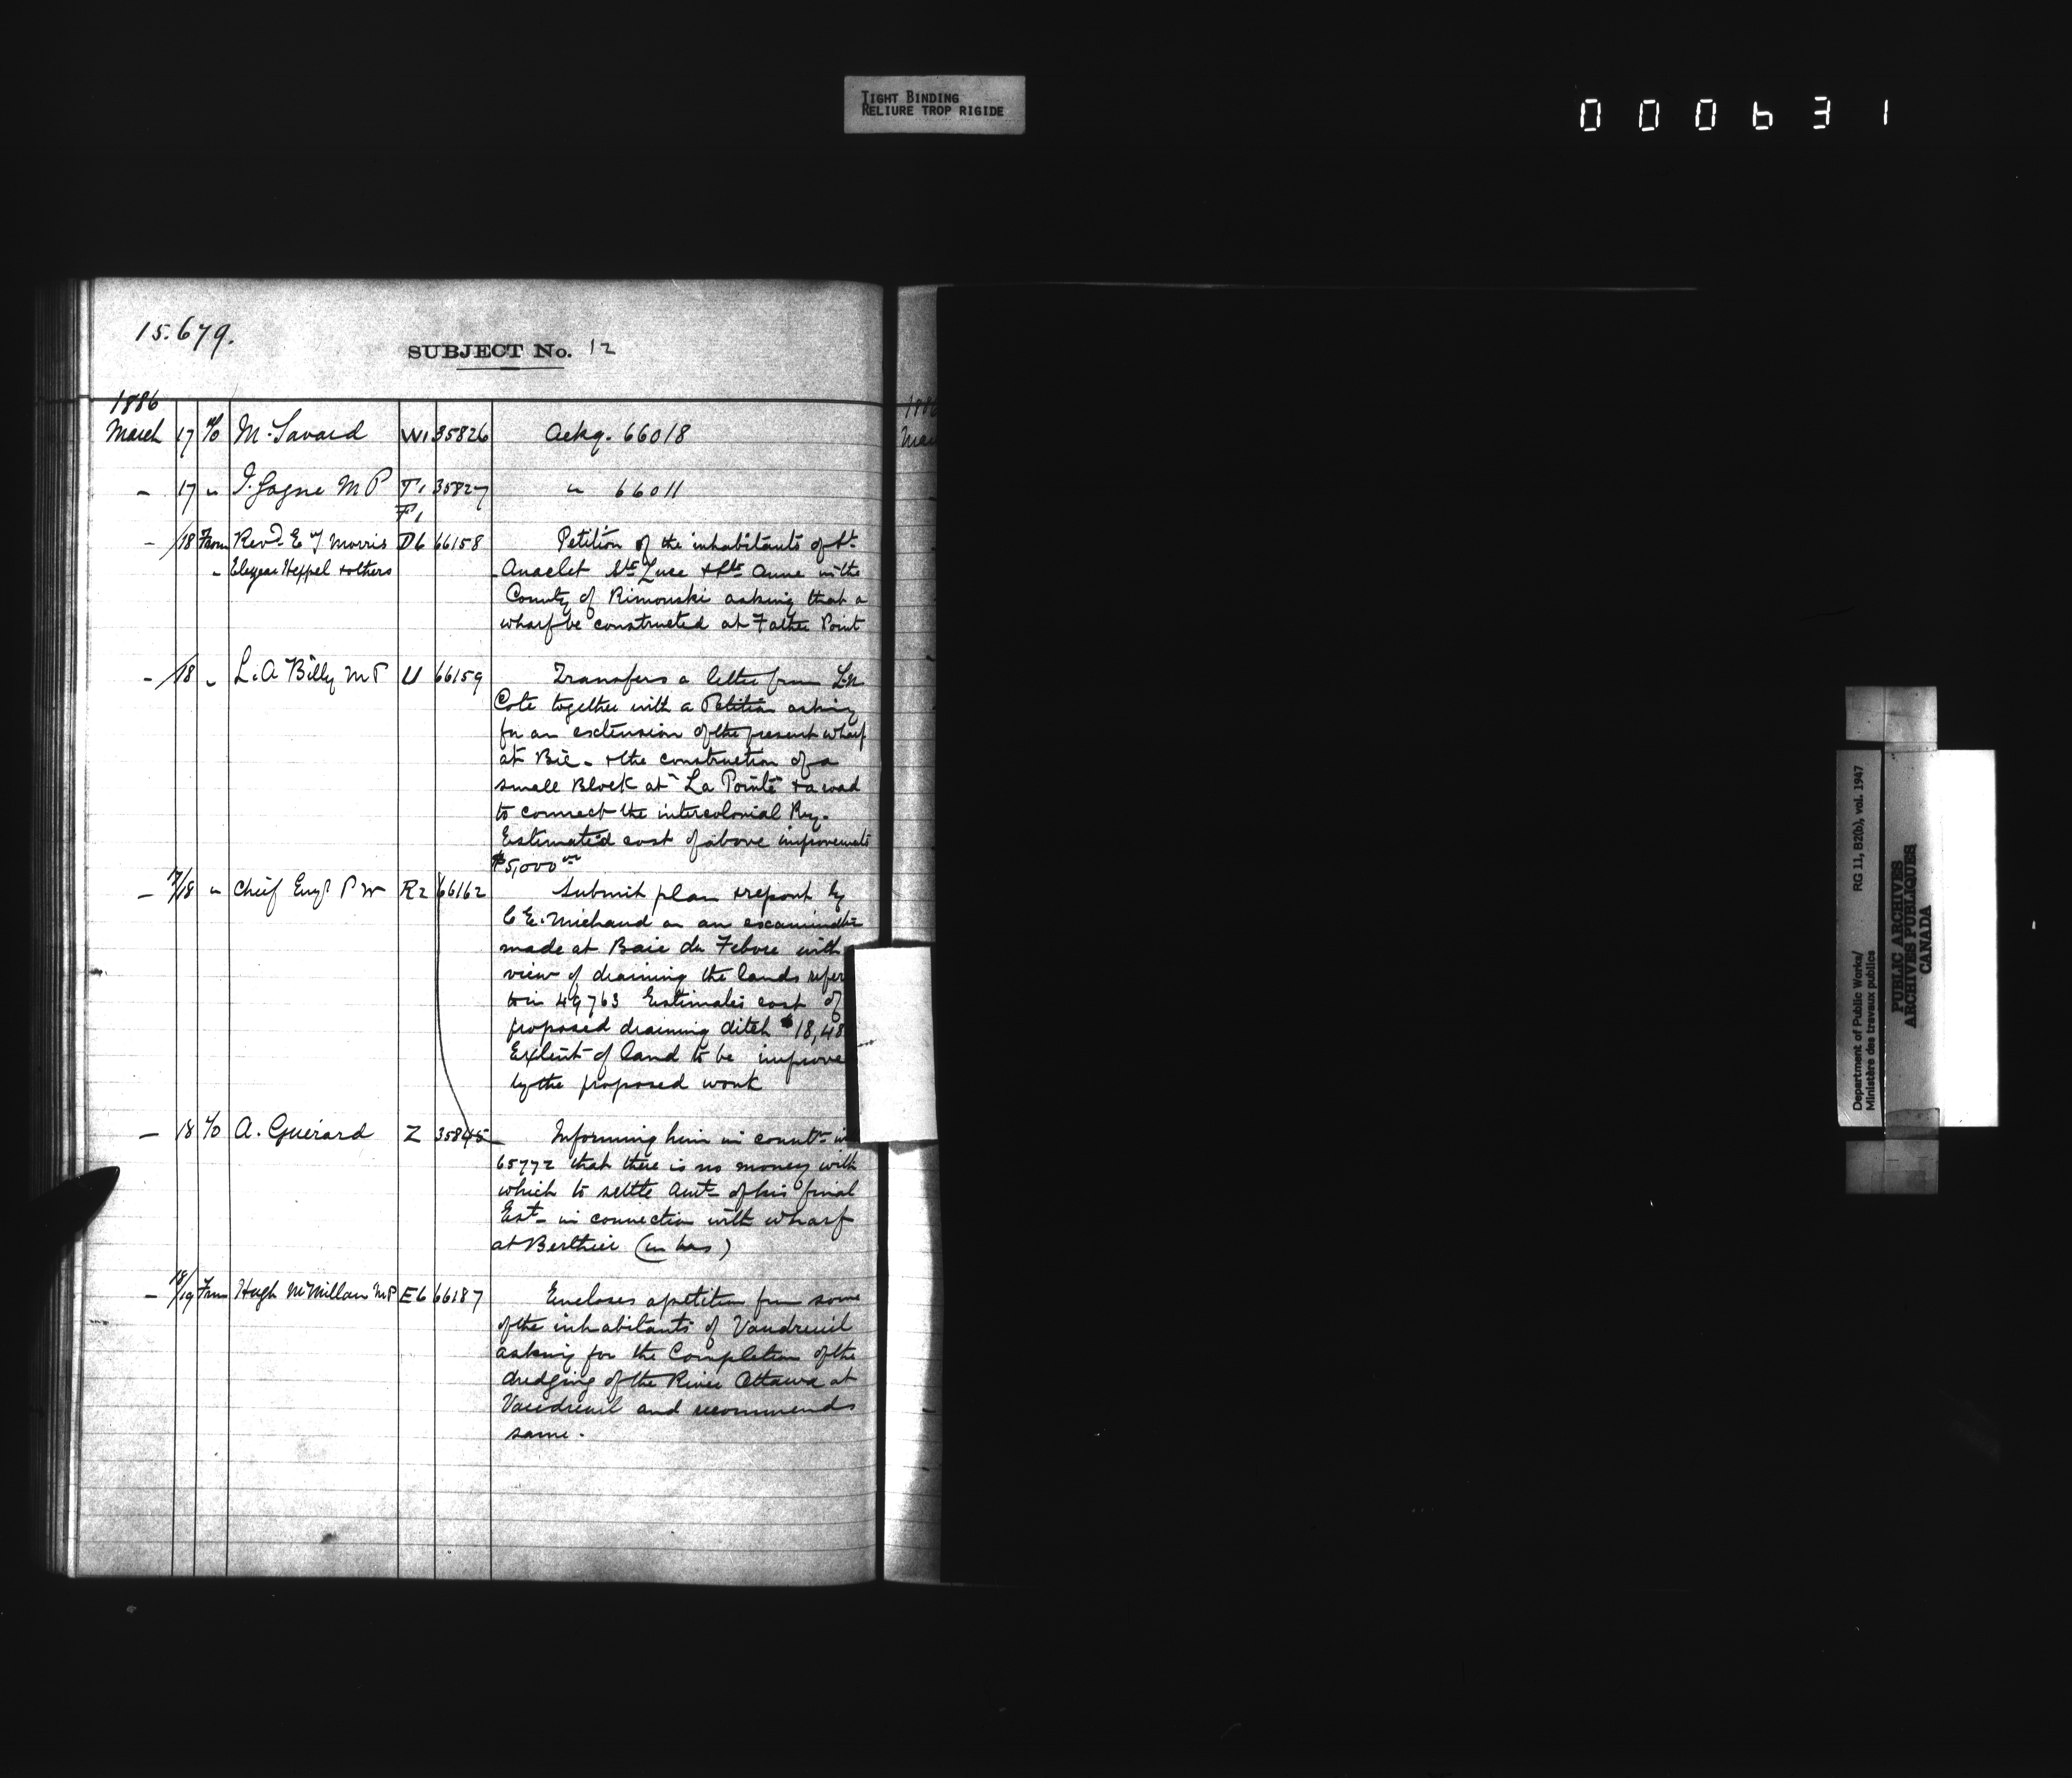 TIGHT BINDING
RELIURE TROP RIGIDE
000631
15.679.
SUBJECT No. 12
1886
March 17 To M. Savard W1 35826 Ackg. 66018
- 17 " J. Gagne M P T1 35827 " 66011
F1
- /18 From Revd. E J Morris D6 66158 Petition of the inhabitants of St.
" Elezear Heppel & others Anaclet Ste Luce & Ste Anne in the
County of Rimouski asking that a
wharf be constructed at Father Point
- /18 " L. A Billy M P U 66159 Transfers a letter from L. N
Cote together with a Petition asking
for an extension of the present wharf
at Bic - & the construction of a
small Block at "La Pointe" & a road
to connect the intercolonial Ry.
Estimated cost of above improvements
$5,000
- 17/18 " Chief Engr P W R2 66162 Submit plan & report by
C E. Michaud on an examination
made at Baie du Febvre with
view of draining the lands refer
to in 49763 Estimates cost of
proposed draining ditch $18,48
Extent of land to be improve
by the proposed work
- 18 To A. Guerard Z 35845 Informing him in
65772 that there is no money with
which to settle Amt of his final
Est. in connection with wharf
at Berthier (en bas)
- 18/19 From Hugh McMillan M P E6 66187 Encloses a petition from some
of the inhabitants of Vaudreuil
asking for the Completion of the
dredging of the River Ottawa at
Vaudreuil and recommends
same.
1886
Mar
Department of Public Works/
Ministère des travaux publics
RG 11, B2(b), vol. 1947
PUBLIC ARCHIVES
ARCHIVES PUBLIQUES
CANADA